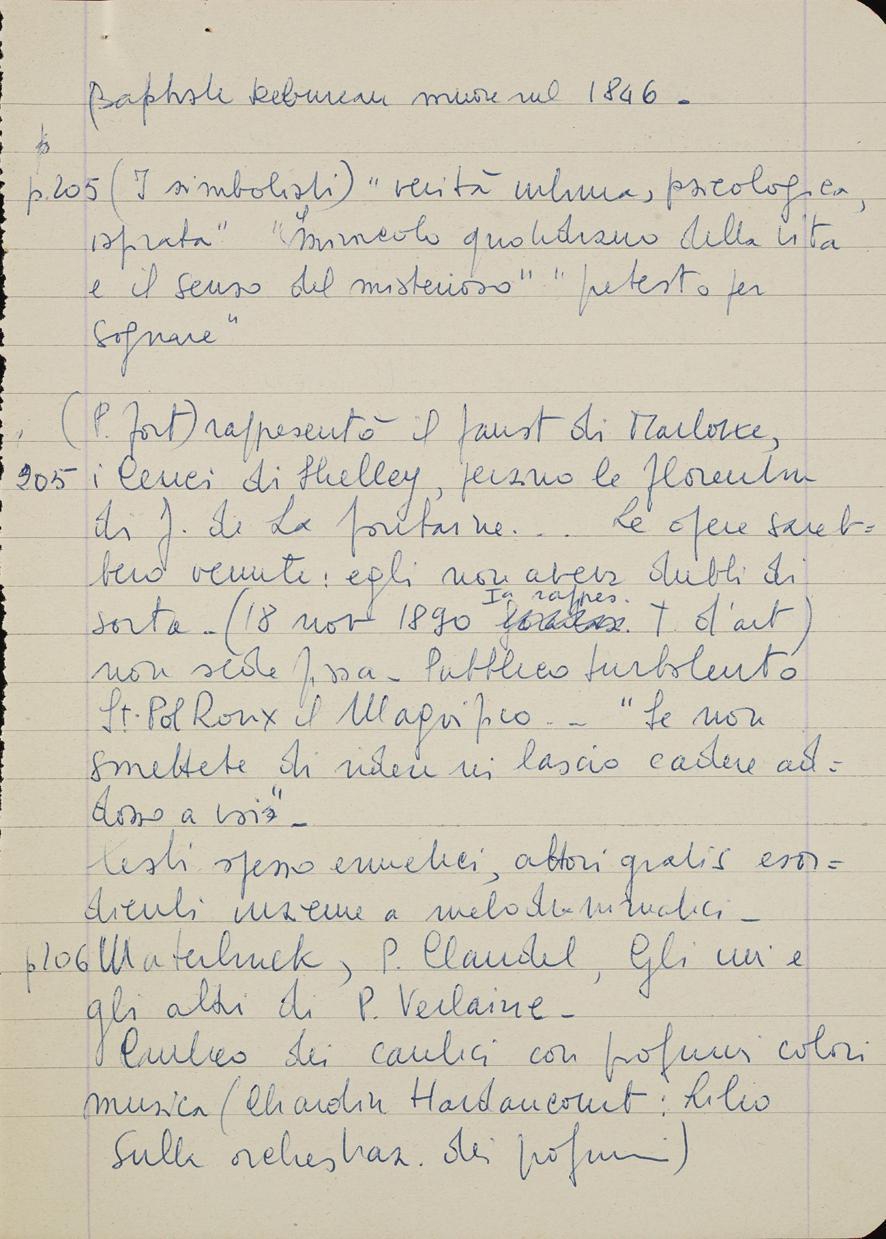 Baptiste Debureau muore nel 1846 -
p.205 (I simbolisti) "verità intima, psicologica,
ispirata" "Il miracolo quotidiano della vita
e il senso del misterioso" "petesto per
sognare"
(P. Fort) rappresentò il Faust di Marlowe,
205 i Cenci di Shelley, persino le Florentin
di J. de La Fontaine... Le opere sareb=
bero venute: egli non aveva dubbi di
sorta - (18 nov 1890 Ia rappres. T d'art)
non sede fissa - Pubblico turbolento
St. Pol Roux il Magnifico - - "Se non
smettete di ridere mi lascio cadere ad=
dosso a voi" -
testi spesso ermetici, attori gratis esor=
dienti insieme a melodrammatici -
p206 Materlinck, P. Claudel, Gli uni e
gli altri di P. Verlaine -
Cantico dei cantici con profumi colori
musica (Chardin Hardancourt: Libro
sulla orchestraz. dei profumi)